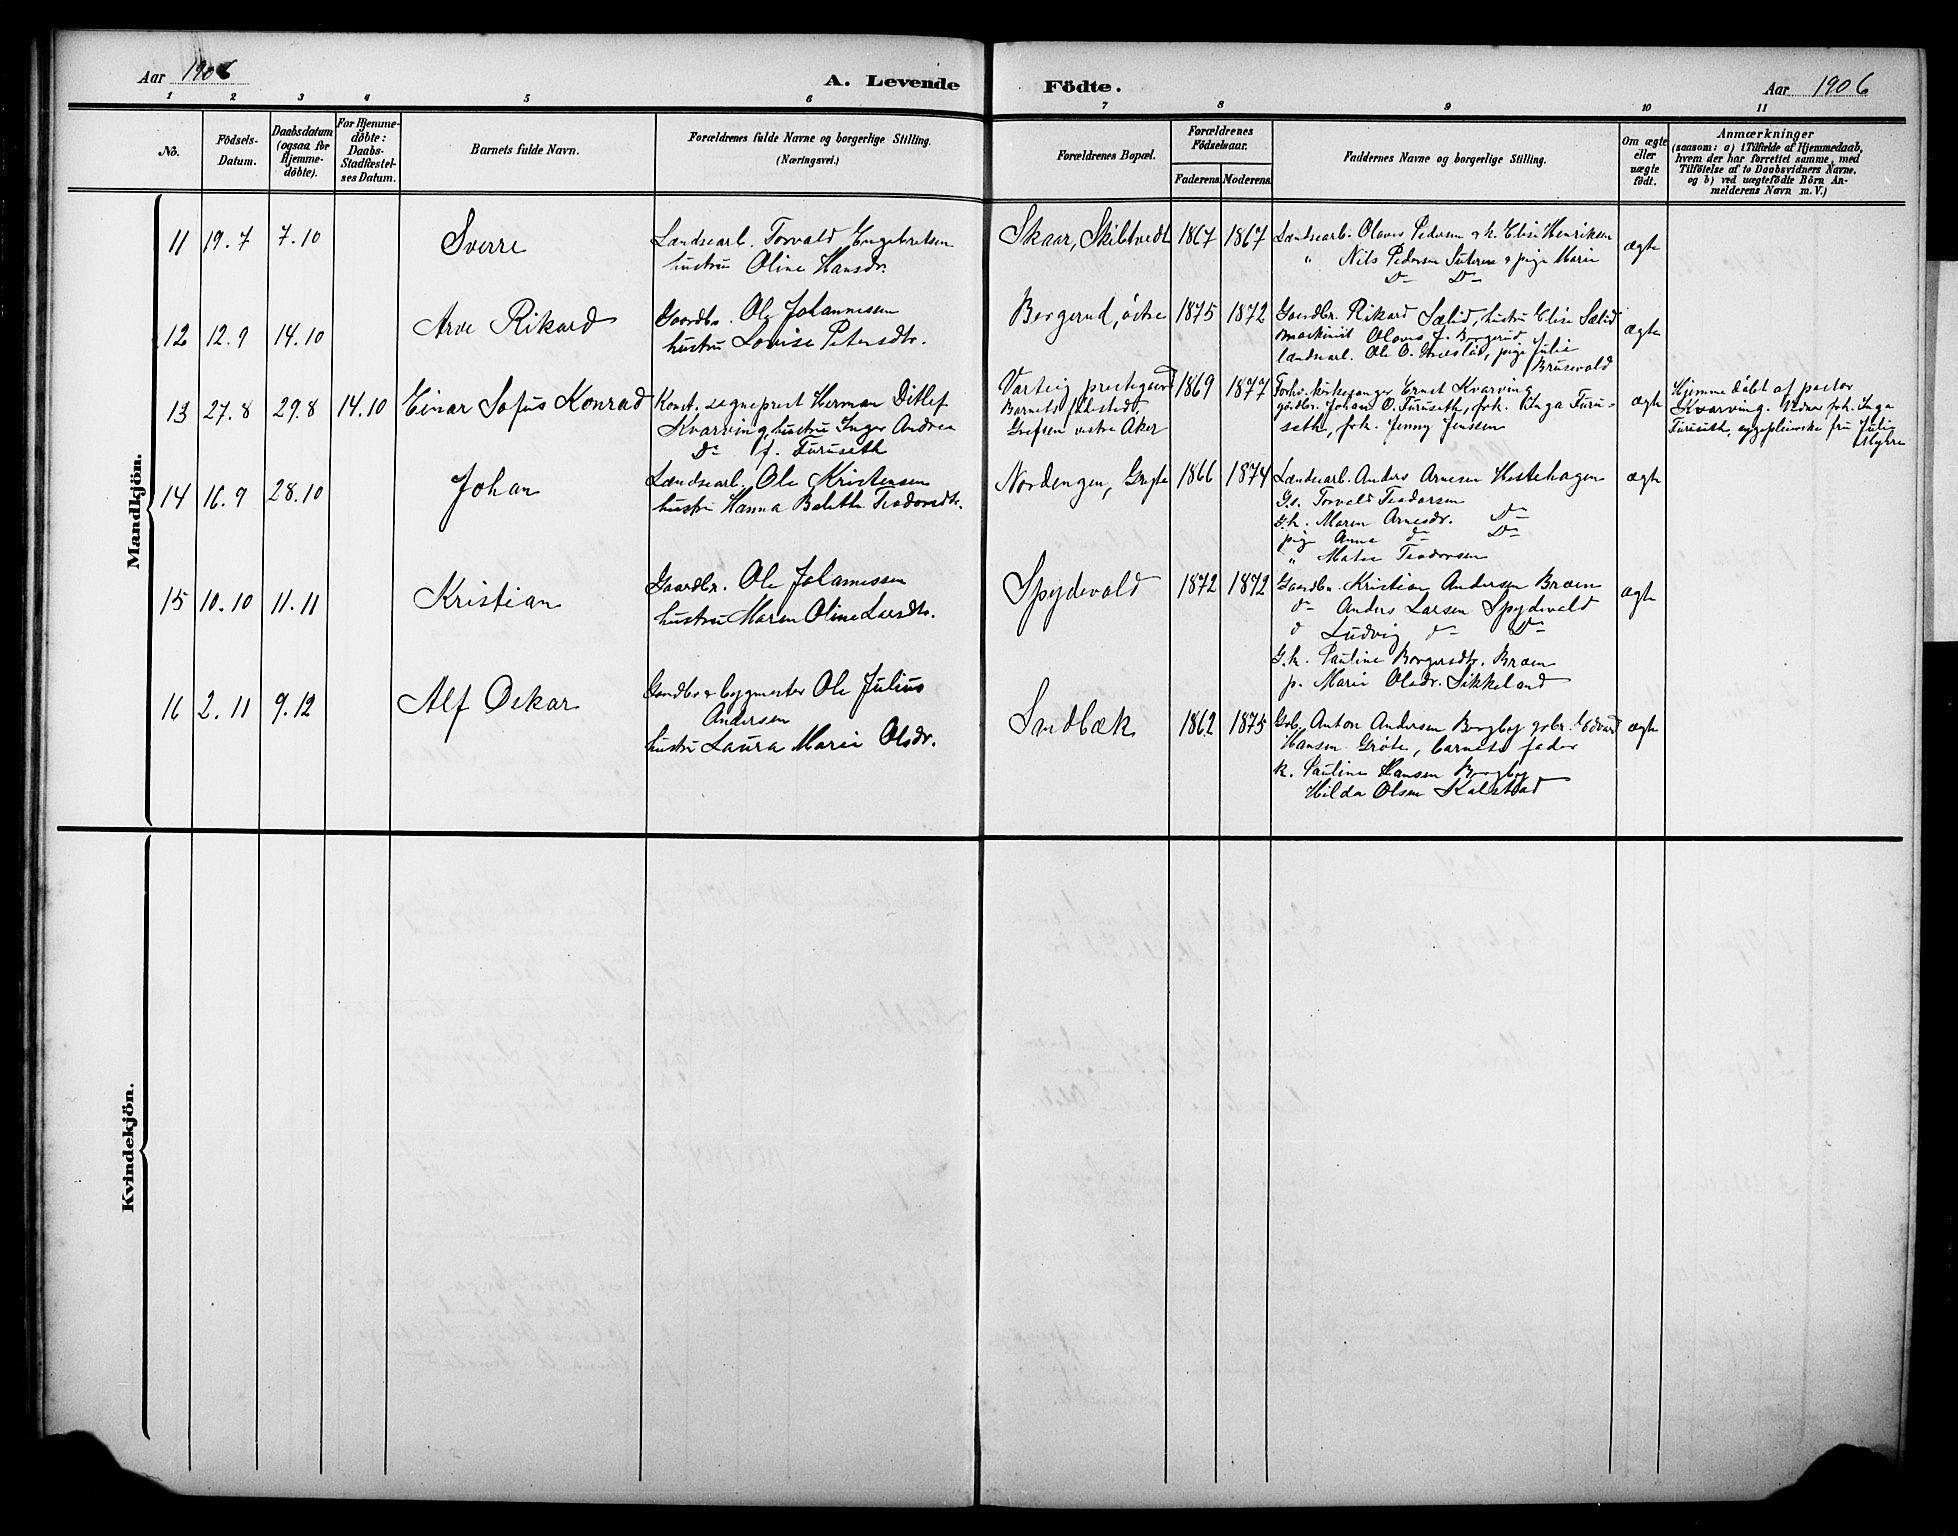 Aar 1906
A. Levende Födte.
Aar 1906
1 2 3 4 5 6 7 8 9 10 11
No.
Födsels-
Datum.
Daabsdatum
(ogsaa for
Hjemme-
döbte).
For Hjemme-
döbte:
Daabs-
Stadfæstel-
ses Datum.
Barnets fulde Navn.
Forældrenes fulde Navne og borgerlige Stilling.
(Næringsvei.)
Forældrenes Bopæl.
Forældrenes
Födselsaar.
Faderens.
Moderens.
Faddernes Navne og borgerlige Stilling.
Om ægte
eller
uægte
födt.
Anmærkninger
(saasom: a) i Tilfælde af Hjemmedaab,
hvem der har forrettet samme, med
Tilföielse af to Daabsvidners Navne,
og b) ved uægtefödte Börn An-
melderens Navn m. V.)
Mandkjön.
11 19.7 7.10 Sverre
Landsearb. Torvald Engebretsen
hustru Oline Hansdr.
Skaar, Skibtvedt 1867 1867
Landsearb. Olaves Pedersen & h. Elise Henriksen
" Nils Pedersen & pige Marie
D- D-
ægte
12 12.9 14.10 Arve Rikard
Gaardbr. Ole Johannesen
hustru Lovise Petersdtr.
Borgerud, östre 1875 1872
Gaardbr. Rikard Sælid, hustru Elise Sælid
maskinist Olaves J. Borgerud
landsearb. Ole O. pige Julie
Brusevold
ægte
13 27.8 29.8 14.10 Einar Sofus Konrad
Konst. sogneprest Herman Ditlef
Kvarving, hustru Inger Andrea
D- f. Furuseth
Varteig prestegaard
Barnets fødested:
Grefsen vestre Aker
1869 1877
Forhv. kirkesanger Ernst Kvarving
gårdbr. Johan O. Furuseth, frk. Inga Furu-
seth, frk. Jenny Jenssen
ægte
Hjemmedöbt af pastor
Kvarving. Vidner frk. Inga
Furuseth, sygepleierske fru Julie
Myhre
14 16.9 28.10 Johan
Landsearb. Ole Kristensen
hustru Hanna Bolette Teodorsdtr.
Nordengen, Gryte 1866 1874
Landsearb. Anders Arnesen Hestehagen
G.s. Torvald Teodorsen
G.k. Maren Arnesdr. D-
pige Anna d- D-
" Mate Teodorsen
ægte
15 10.10 11.11 Kristian
Gaardbr. Ole Johannessen
hustru Maren Oline Larsdtr.
Spydevold 1872 1872
Gaardbr. Kristian Andersen Braten
d- Anders Larsen Spydevold
d Ludvig d- D-
G.k. Pauline Borgersdtr. Braten
p. Marie Olsdr. Sikkeland
ægte
16 2.11 9.12 Alf Oskar
Gaardbr & bygmester Ole Julius
Andersen
hustru Laura Marie Olsdr.
Sandbæk 1862 1875
Gbr. Anton Andersen Borgby gbr. Edvard
Hansen Gröte, barnets fader
k. Pauline Hansen Borgby
Hilda Olsen Kalstad
ægte
Kvindekjön.